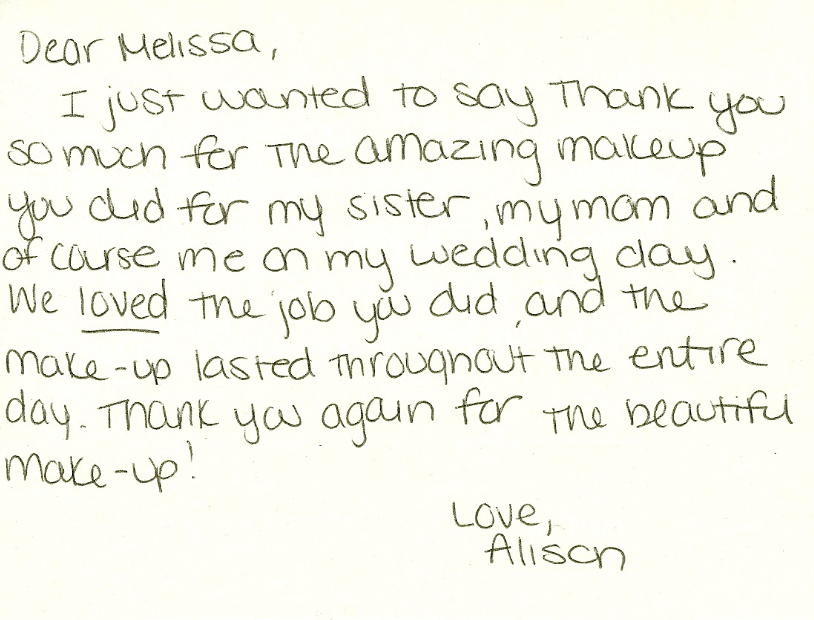 Dear Melissa,
I just wanted to say Thank you
so much for the amazing makeup
you did for my sister, my mom and
of course me on my wedding day.
We loved the job you did, and the
make-up lasted throughout the entire
day. Thank you again for the beautiful
make-up!
Love,
Alison